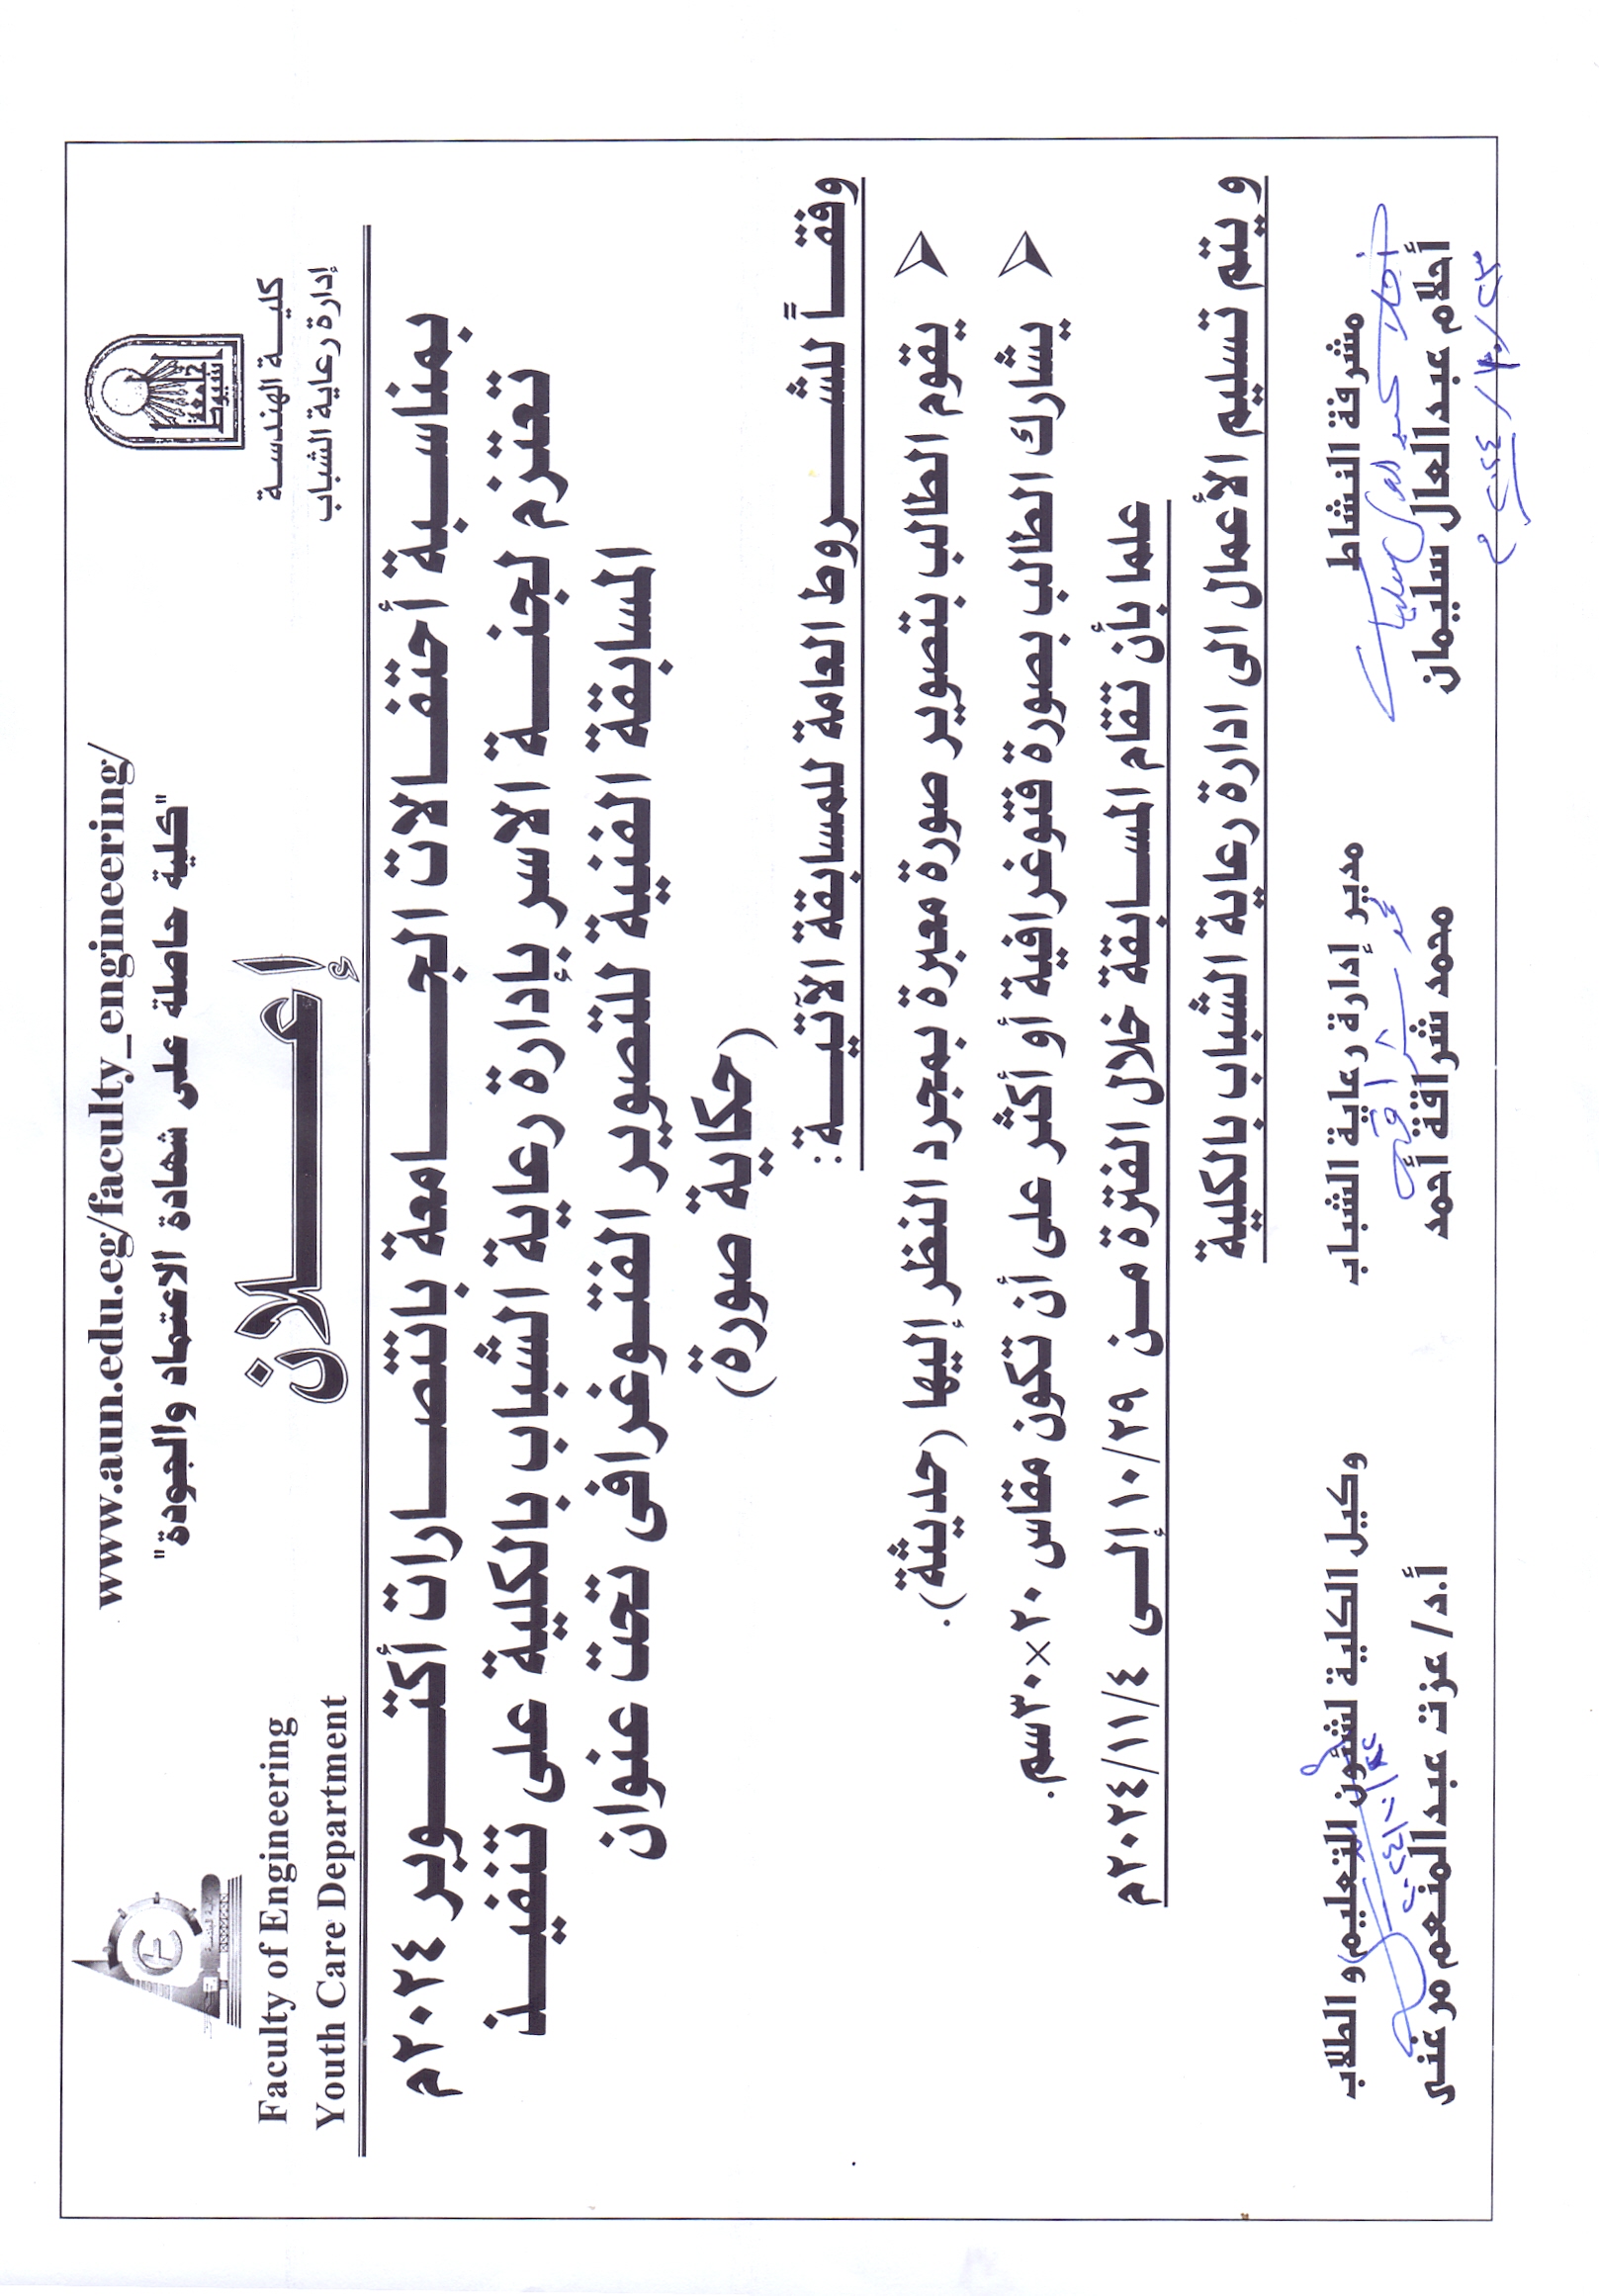 www.aun.edu.eg/faculty_engineering/
"كلية حاصلة على شهادة الاعتماد والجودة"
كليـــة الهندســـة
إدارة رعاية الشباب
Faculty of Engineering
Youth Care Department
إعـــلان
بمناســبة أحتفــالات الجـــامعة بانتصــارات أكتــوبر ٢٠٢٤م
تعتزم لجنــة الاسر بإدارة رعاية الشباب بالكلية على تنفيــذ
المسابقة الفنية للتصوير الفتــوغرافى تحت عنوان
(حكاية صورة)
وفقــاً للشـــروط العامة للمسابقة الآتيــة:
يقوم الطالب بتصوير صورة معبرة بمجرد النظر إليها (حديثة).
يشارك الطالب بصورة فتوغرافية أو أكثر على أن تكون مقاس ٢٠×٣٠سم.
علما بأن تقام المســابقة خلال الفترة مــن ١٠/٢٩ إلــى ٢٠٢٤/١١/٤م
و يتم تسليم الأعمال الى ادارة رعاية الشباب بالكلية
مشرفة النشاط
أحلام عبدالعال سليمان
مدير إدارة رعاية الشباب
محمد شراقة أحمد
وكيل الكلية لشئون التعليم و الطلاب
أ.د/ عزت عبدالمنعم مرغنى